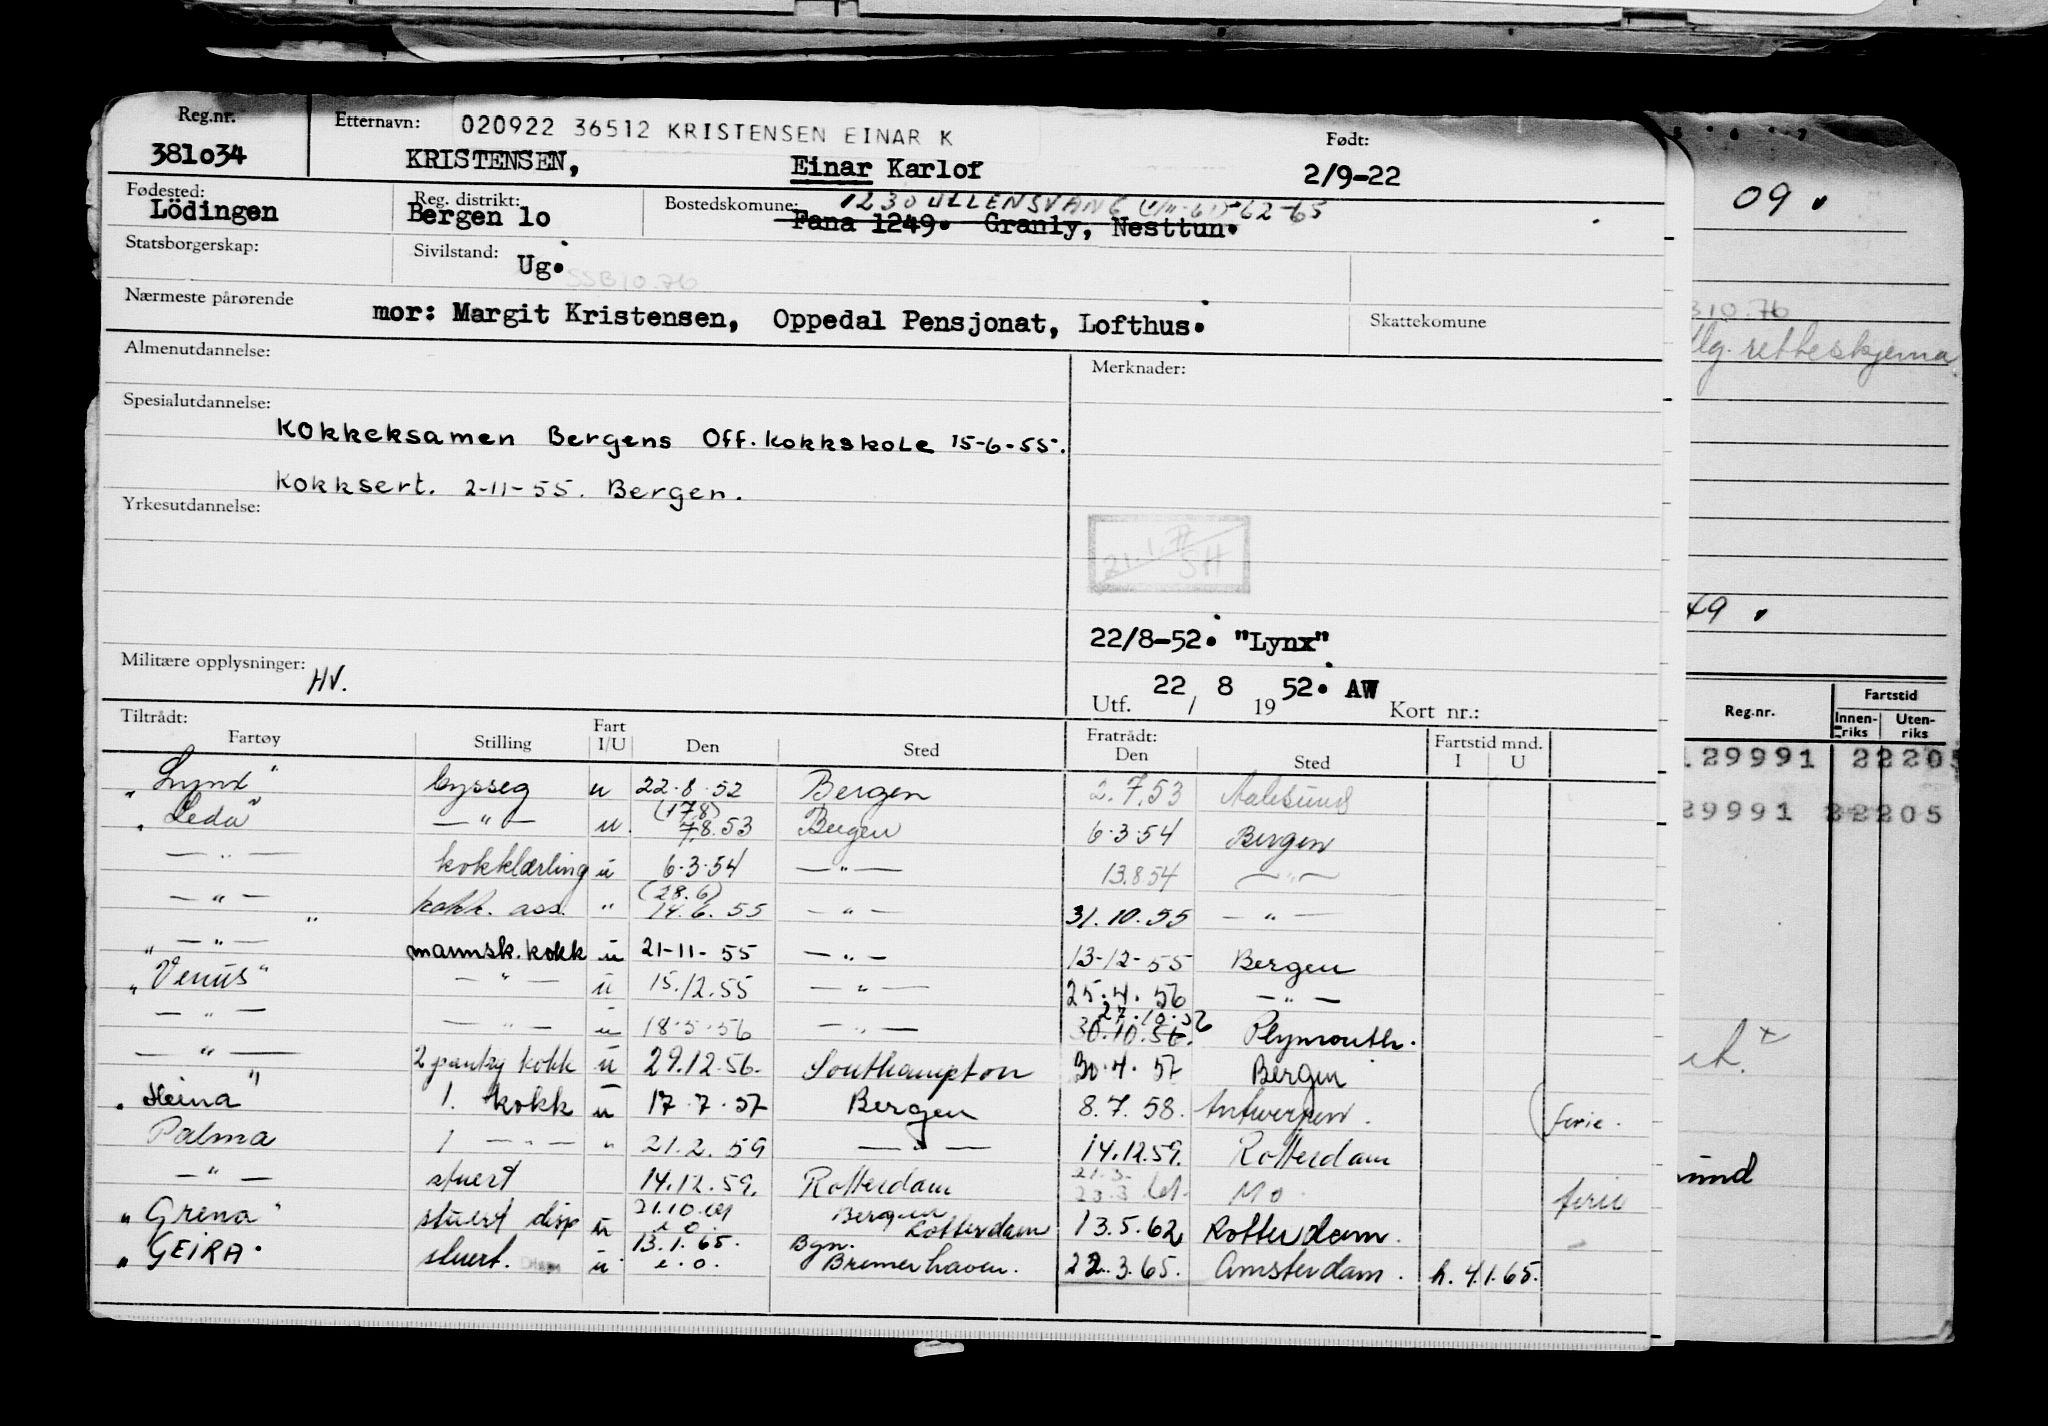 Reg.nr. Etternavn: 020922 36512 KRISTENSEN EINAR K Født:
381o34 KRISTENSEN, Einar Karlof 2/9-22
Fødested: Reg. distrikt: Bostedskomune: 1230 ULLENSVANG 62-65
Lödingen Bergen 1o Fana 1249. Granly, Nesttun.
Statsborgerskap: Sivilstand: Ug.
SSB 10.76
Nærmeste pårørende mor: Margit Kristensen, Oppedal Pensjonat, Lofthus. Skattekomune
Almenutdannelse: Merknader:
Spesialutdannelse:
Kokkeksamen Bergens Off. Kokkskole 15-6-55.
Kokksert. 2-11-55. Bergen.
Yrkesutdannelse:
22/8-52. "Lynx"
Militære opplysninger: HV.
Utf. 22 / 8 19 52. AW Kort nr.:
Tiltrådt: Fratrådt:
Fartøy Stilling Fart I/U Den Sted Den Sted Fartstid mnd. I U
"Lynx" bysseg u 22.8.52 Bergen 2.7.53 Aalesund
"Leda" — " — u. (17.8) 7.8.53 Bergen 6.3.54 Bergen
— " — kokklærling u 6.3.54 — " — 13.8.54 — " —
— " — kokk. ass. " (28.6) 14.6.55 — " — 31.10.55 — " —
" — " — " mannsk. kokk u 21-11-55 — " — 13-12-55 Bergen
"Venus" — " — u 15.12.55 — " — 25.4.56 — " —
— " — — " — u 18.5.56 — " — 27.10.56 30.10.56. Plymouth.
— " — 2 pantry kokk u 29.12.56. Southampton 30.4.57 Bergen
"Heina" 1. kokk u 17.7.57 Bergen 8.7.58. Antwerpen. ferie.
Palma 1 — " — " 21.2.59 — " — 14.12.59. Rotterdam
— " — stuert 14.12.59. Rotterdam 21.3. 23.3.61. Mo. ferie
"Grena" stuert disp u 21.10.61 e.o. Bergen Rotterdam 13.5.62 Rotterdam.
"GEIRA. stuert. u 13.1.65. e.o. Bgn. Bremerhaven. 22.3.65. Amsterdam. h. 4.1.65.
09.
310.76
retteskjema
49.
Reg.nr. Fartstid
Innenriks Utenriks
129991 22205
29991 22205
sund